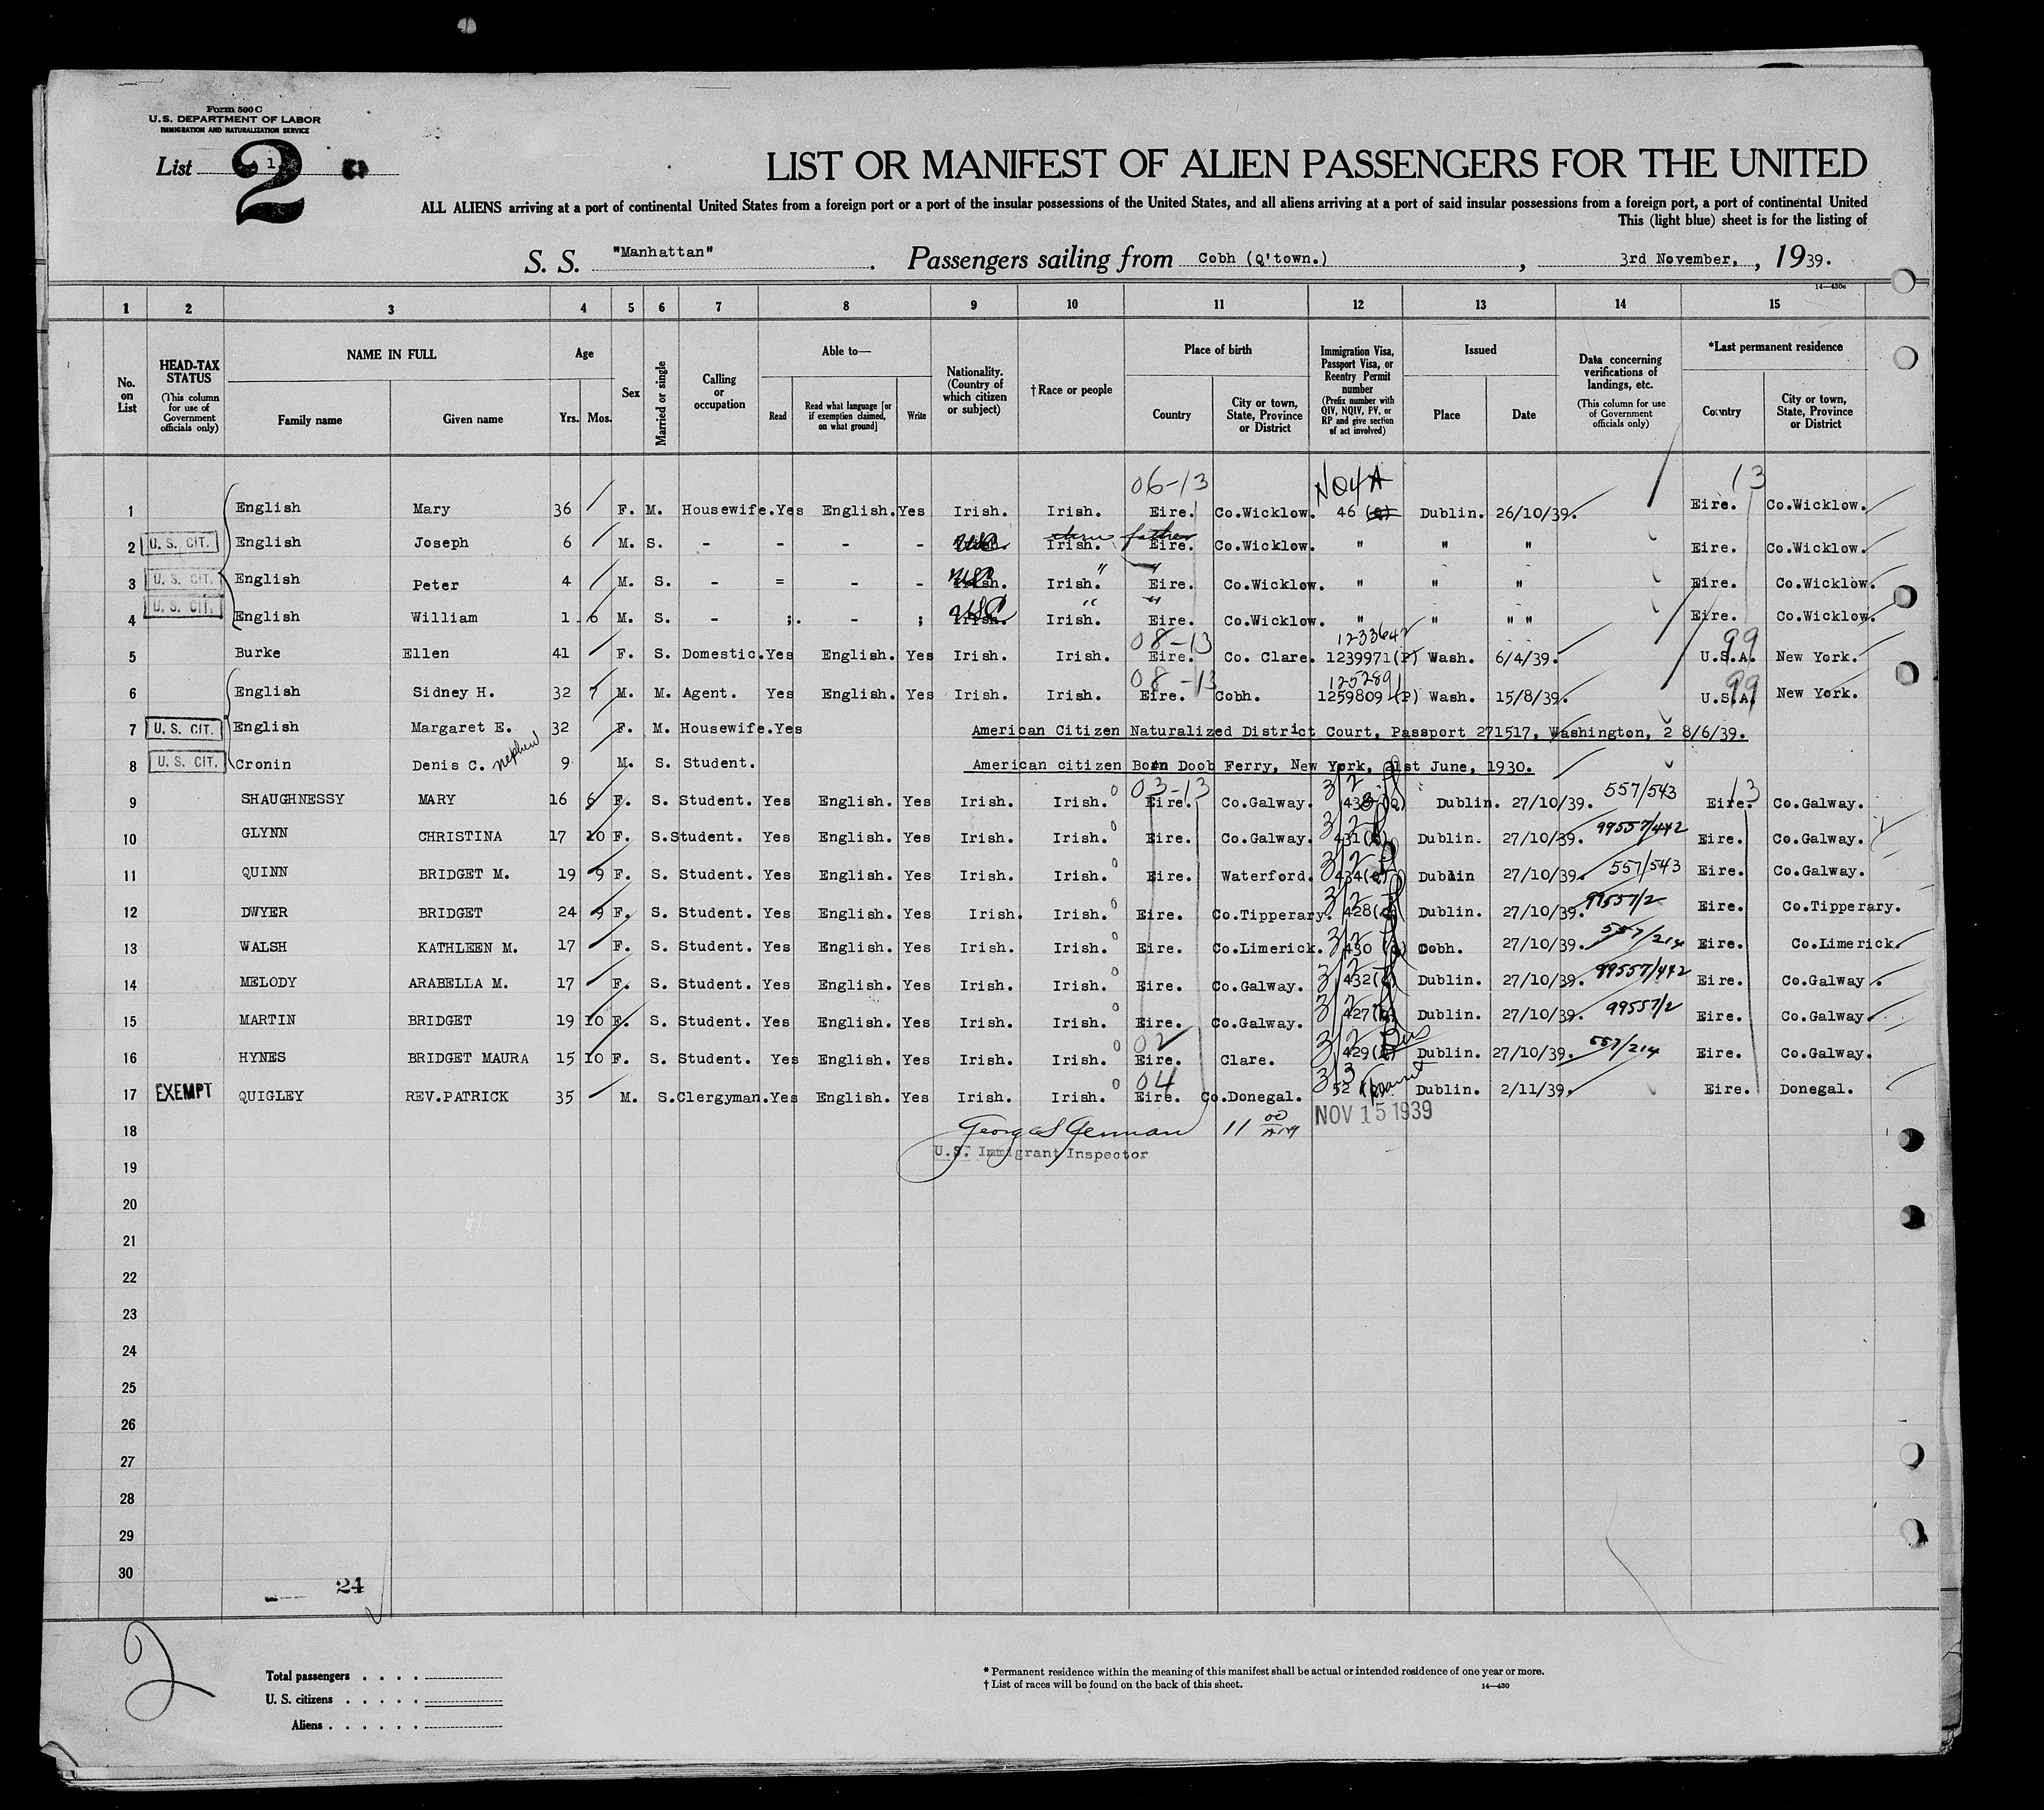 Form 500 C
U.S. DEPARTMENT OF LABOR
IMMIGRATION AND NATURALIZATION SERVICE
List 1
2
LIST OR MANIFEST OF ALIEN PASSENGERS FOR THE UNITED
ALL ALIENS arriving at a port of continental United States from a foreign port or a port of the insular possessions of the United States, and all aliens arriving at a port of said insular possessions from a foreign port, a port of continental United
This (light blue) sheet is for the listing of
S. S. "Manhattan". Passengers sailing from Cobh (Q'town.), 3rd November, , 1939.
14—430c
1 2 3 4 5 6 7 8 9 10 11 12 13 14 15
No. on List
HEAD-TAX STATUS
(This column for use of Government officials only)
NAME IN FULL
Family name Given name
Age
Yrs. Mos.
Sex
Married or single
Calling or occupation
Able to—
Read Read what language [or if exemption claimed, on what ground] Write
Nationality. (Country of which citizen or subject)
† Race or people
Place of birth
Country City or town, State, Province or District
Immigration Visa, Passport Visa, or Reentry Permit number
(Prefix number with QIV, NQIV, PV, or RP and give section of act involved)
Issued
Place Date
Data concerning verifications of landings, etc.
(This column for use of Government officials only)
*Last permanent residence
Country City or town, State, Province or District
06-13 NO4A 13
1 English Mary 36 F. M. Housewife. Yes English. Yes Irish. Irish. Eire. Co.Wicklow. 46 Dublin. 26/10/39. Eire. Co.Wicklow.
father
2 U. S. CIT. English Joseph 6 M. S. - - - - Irish. Eire. Co.Wicklow. " " " Eire. Co.Wicklow.
3 U. S. CIT. English Peter 4 M. S. - = - - Irish. " Eire. " Co.Wicklow. " " " Eire. Co.Wicklow.
4 U. S. CIT. English William 1 6 M. S. - ;. - ; Irish. " Eire. " Co.Wicklow. " " " " Eire. Co.Wicklow.
08-13 123364 99
5 Burke Ellen 41 F. S. Domestic. Yes English. Yes Irish. Irish. Eire. Co. Clare. 1239971(P) Wash. 6/4/39. U.S.A. New York.
08-13 125289 99
6 English Sidney H. 32 7 M. M. Agent. Yes English. Yes Irish. Irish. Eire. Cobh. 1259809 (P) Wash. 15/8/39. U.S.A. New York.
7 U. S. CIT. English Margaret E. 32 F. M. Housewife. Yes American Citizen Naturalized District Court, Passport 271517, Washington, 2 8/6/39.
8 U. S. CIT. Cronin Denis C. nephew 9 M. S. Student. American citizen Born Doob Ferry, New York, 21st June, 1930.
03-13 3/2 13
9 SHAUGHNESSY MARY 16 6 F. S. Student. Yes English. Yes Irish. Irish. Eire. Co.Galway. Dublin. 27/10/39. 557/543 Eire. Co.Galway.
3/2
10 GLYNN CHRISTINA 17 10 F. S. Student. Yes English. Yes Irish. Irish. Eire. Co.Galway. 431 Dublin. 27/10/39. 99557/442 Eire. Co.Galway.
3/2
11 QUINN BRIDGET M. 19 9 F. S. Student. Yes English. Yes Irish. Irish. Eire. Waterford. 434 Dublin 27/10/39. 557/543 Eire. Co.Galway.
3/2
12 DWYER BRIDGET 24 9 F. S. Student. Yes English. Yes Irish. Irish. Eire. Co.Tipperary. 428 Dublin. 27/10/39. 99557/2 Eire. Co.Tipperary.
3/2
13 WALSH KATHLEEN M. 17 F. S. Student. Yes English. Yes Irish. Irish. Eire. Co.Limerick. 430 Cobh. 27/10/39. 557/214 Eire. Co.Limerick.
3/2
14 MELODY ARABELLA M. 17 F. S. Student. Yes English. Yes Irish. Irish. Eire. Co.Galway. 432 Dublin. 27/10/39. 99557/442 Eire. Co.Galway.
3/2
15 MARTIN BRIDGET 19 10 F. S. Student. Yes English. Yes Irish. Irish. Eire. Co.Galway. 427 Dublin. 27/10/39. 99557/2 Eire. Co.Galway.
02 3/2
16 HYNES BRIDGET MAURA 15 10 F. S. Student. Yes English. Yes Irish. Irish. Eire. Clare. 429 Dublin. 27/10/39. 557/214 Eire. Co.Galway.
04 3/3
17 EXEMPT QUIGLEY REV.PATRICK 35 M. S. Clergyman. Yes English. Yes Irish. Irish. Eire. Co.Donegal. 52 Dublin. 2/11/39. Eire. Donegal.
18 George S German 11 00 AM NOV 15 1939
19 U.S. Immigrant Inspector
20
21
22
23
24
25
26
27
28
29
30
24
2
Total passengers . . . .
U. S. citizens . . . . .
Aliens . . . . . .
* Permanent residence within the meaning of this manifest shall be actual or intended residence of one year or more.
† List of races will be found on the back of this sheet.
14—430